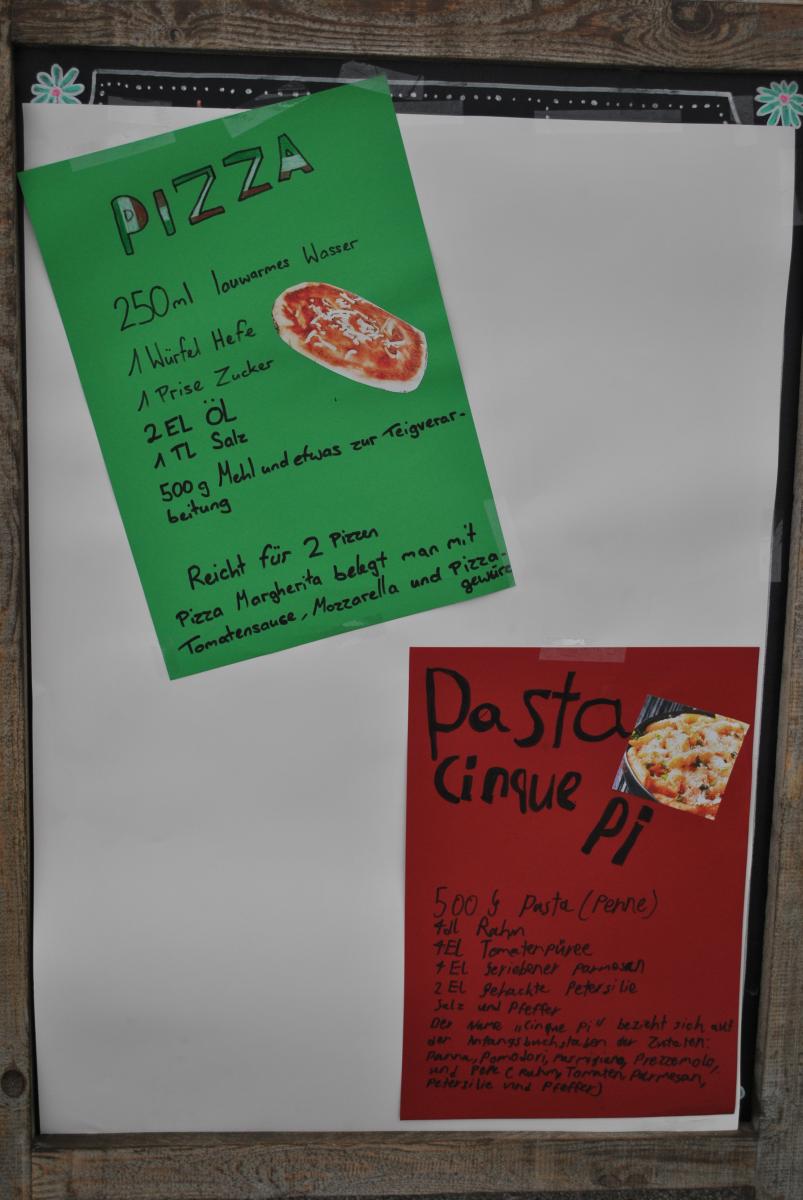 PIZZA
250ml lauwarmes Wasser
1 Würfel Hefe
1 Prise Zucker
2 EL ÖL
1 TL Salz
500g Mehl und etwas zur Teigverar-
beitung
Reicht für 2 Pizzen
Pizza Margherita belegt man mit
Tomatensause, Mozzarella und Pizza-
gewürz
Pasta
Cinque
Pi
500 g Pasta (Penne)
4dl Rahm
4EL Tomatenpüree
4 EL geriebener Parmesan
2 EL gehackte Petersilie
Salz und Pfeffer
Der Name „Cinque Pi" bezieht sich auf
der Anfangsbuchstaben der Zutaten:
Panna, Pomodori, Parmigiano, Prezzemolo,
und Pepe (Rahm, Tomaten, Parmesan,
Petersilie und Pfeffer)